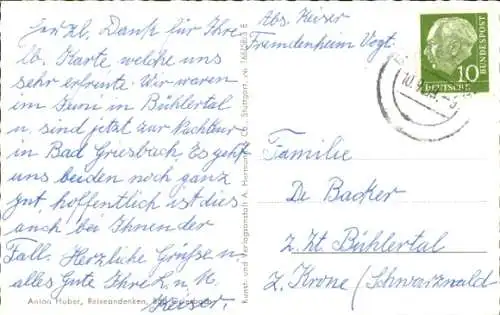 Herzl. Dank für Ihre
lb. Karte welche uns
sehr erfreute. Wir waren
im Juni in Bühlertal
u. sind jetzt zur Nachkur
in Bad Griesbach. Es geht
uns beiden noch ganz
gut, hoffentlich ist dies
auch bei Ihnen der
Fall. Herzliche Grüsse u.
alles Gute Ihre u. M.
Keiser.
Anton Huber, Reiseandenken, Bad Griesbach
Kunst- und Verlagsanstalt A.
Co. Stuttgart
Abs. Keiser
Fremdenheim Vogt.
10
DEUTSCHE
BUNDESPOST
10.9.
Familie
De Backer
z. Zt Bühlertal
z. Krone (Schwarzwald